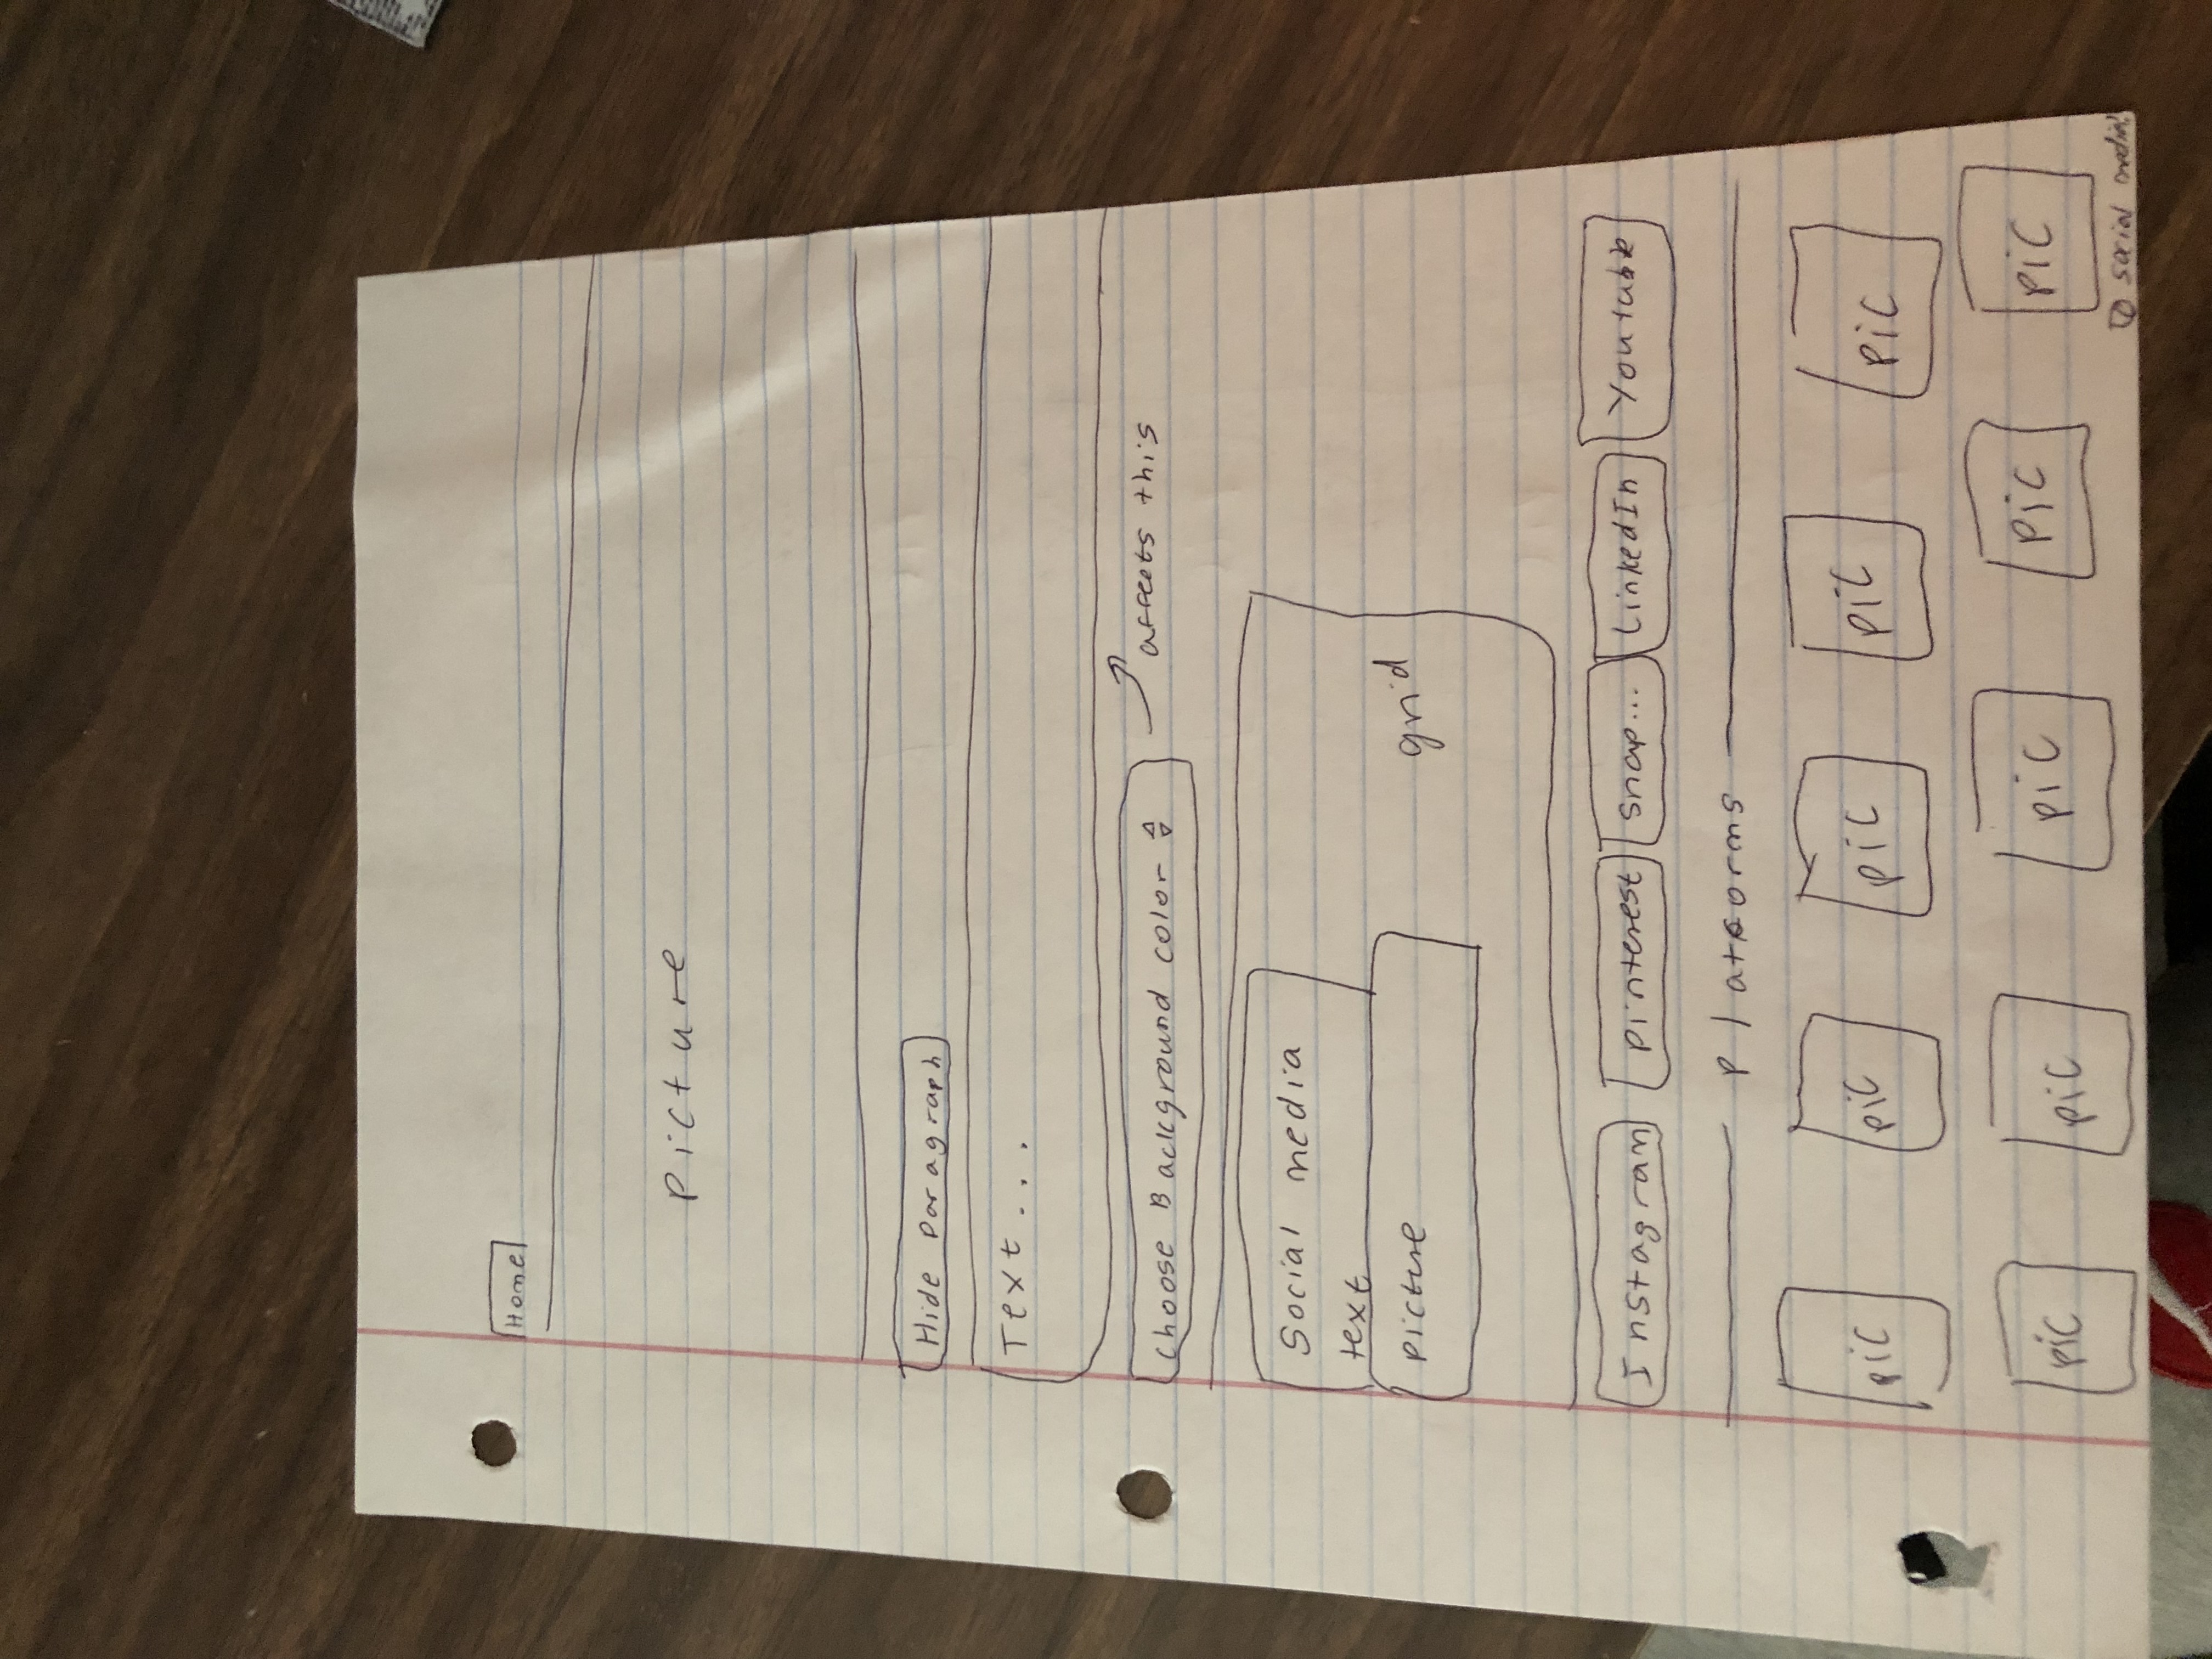 Home
picture
Hide paragraph
Text...
choose Background color
affects this
Social media
text
picture
grid
Instagram pinterest Snap... LinkedIn Youtube
Platforms
pic pic pic pic pic
pic pic pic pic pic
social media!